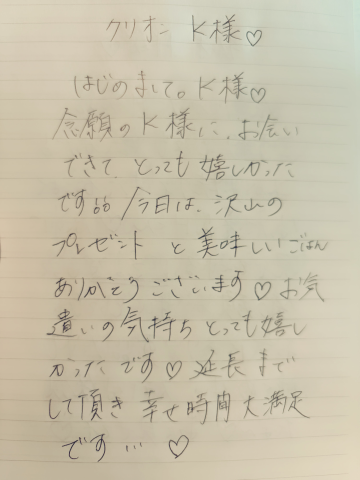 クリオン K様♡
はじめまして。K様♡
念願のK様に、お会い
できて、とっても嬉しかった
です 今日は、沢山の
プレゼントと美味しいごはん
ありがとうございます♡お気
遣いの気持ちとっても嬉し
かったです♡延長まで
して頂き幸せ時間大満足
です…♡